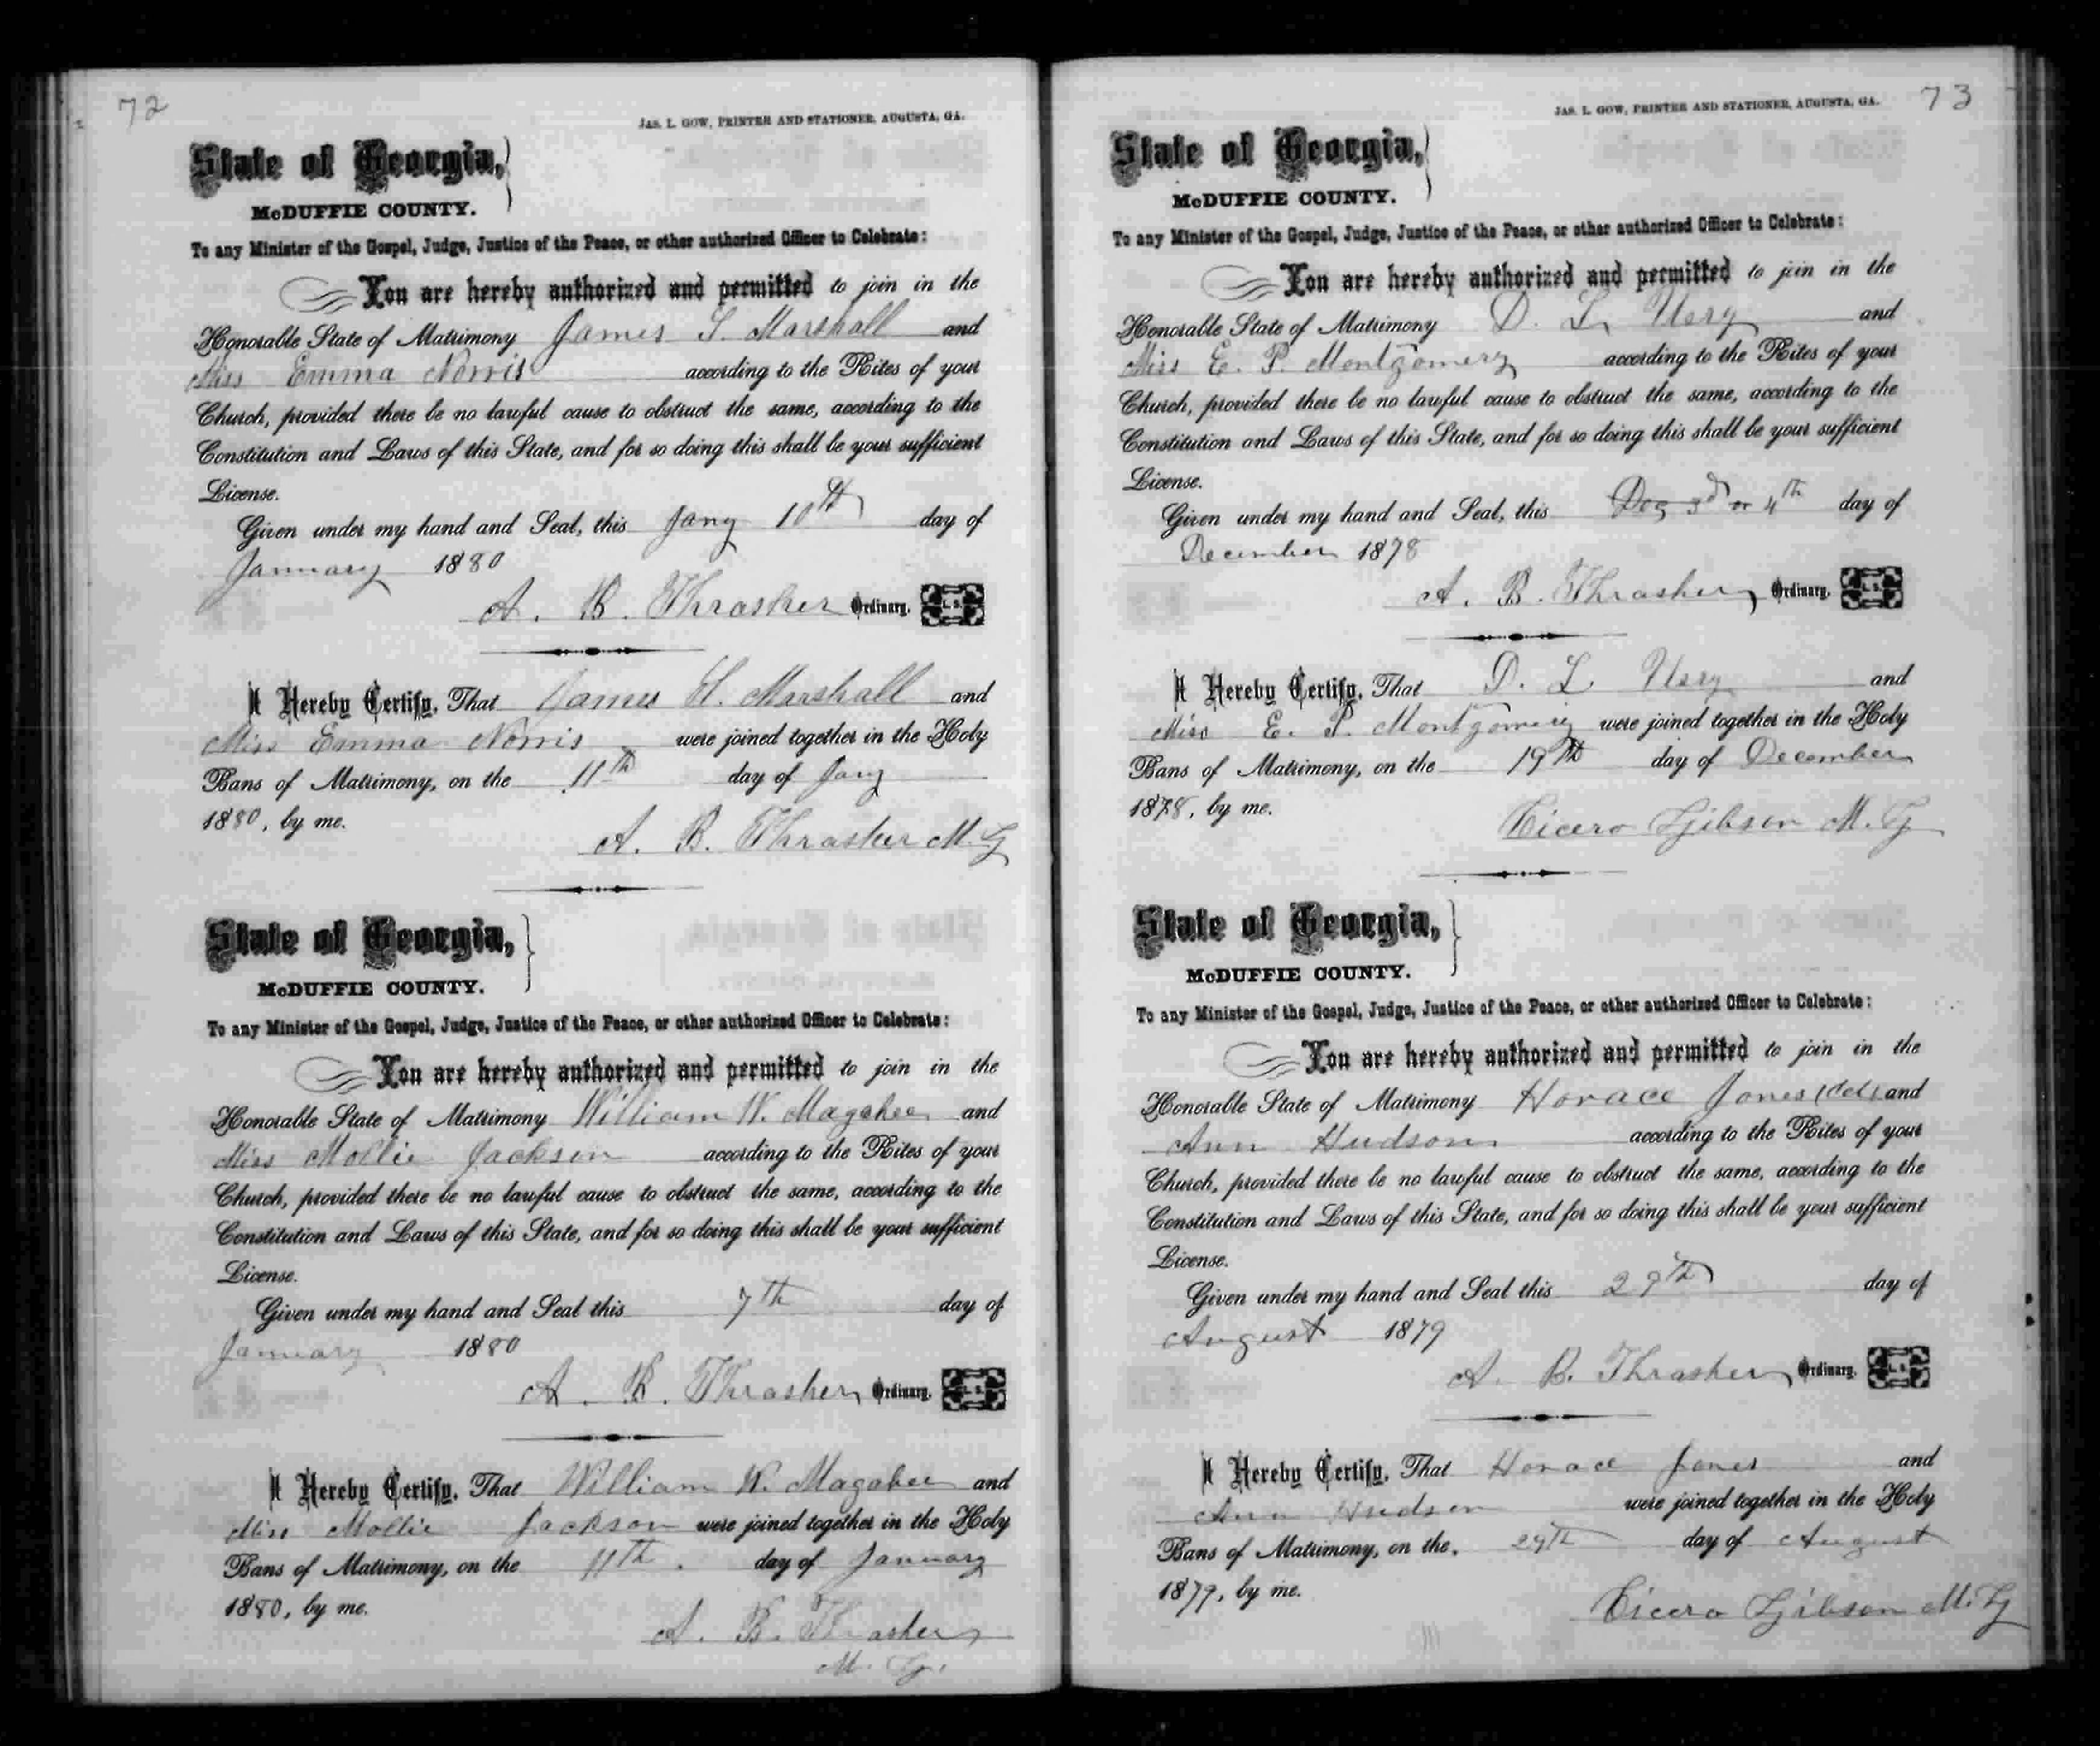 72
JAS. L. GOW, PRINTER AND STATIONER, AUGUSTA, GA.
State of Georgia,
McDUFFIE COUNTY.
To any Minister of the Gospel, Judge, Justice of the Peace, or other authorized Officer to Celebrate:
You are hereby authorized and permitted to join in the
Honorable State of Matrimony James S. Marshall and
Miss Emma Norris according to the Rites of your
Church, provided there be no lawful cause to obstruct the same, according to the
Constitution and Laws of this State, and for so doing this shall be your sufficient
License.
Given under my hand and Seal, this Jany 10th day of
January 1880
A. B. Thrasher Ordinary. L. S.
I Hereby Certify, That James H. Marshall and
Miss Emma Norris were joined together in the Holy
Bans of Matrimony, on the 11th day of Jany
1880, by me.
A. B. Thrasher M. G
State of Georgia,
McDUFFIE COUNTY.
To any Minister of the Gospel, Judge, Justice of the Peace, or other authorized Officer to Celebrate:
You are hereby authorized and permitted to join in the
Honorable State of Matrimony William W. Magahee and
Miss Mollie Jackson according to the Rites of your
Church, provided there be no lawful cause to obstruct the same, according to the
Constitution and Laws of this State, and for so doing this shall be your sufficient
License.
Given under my hand and Seal this 7th day of
January 1880
A. B. Thrasher Ordinary. L. S.
I Hereby Certify, That William W. Magahee and
Miss Mollie Jackson were joined together in the Holy
Bans of Matrimony, on the 11th. day of January
1880, by me.
A. B. Thrasher
M. G.
73
JAS. L. GOW, PRINTER AND STATIONER, AUGUSTA, GA.
State of Georgia,
McDUFFIE COUNTY.
To any Minister of the Gospel, Judge, Justice of the Peace, or other authorized Officer to Celebrate:
You are hereby authorized and permitted to join in the
Honorable State of Matrimony D. L. Usry and
Miss E. P. Montgomery according to the Rites of your
Church, provided there be no lawful cause to obstruct the same, according to the
Constitution and Laws of this State, and for so doing this shall be your sufficient
License.
Given under my hand and Seal, this 3d or 4th day of
December 1878
A. B. Thrasher, Ordinary. L. S.
I Hereby Certify, That D. L. Usry and
Miss E. P. Montgomery were joined together in the Holy
Bans of Matrimony, on the 19th day of December
1878, by me.
Cicero Gibson M. G
State of Georgia,
McDUFFIE COUNTY.
To any Minister of the Gospel, Judge, Justice of the Peace, or other authorized Officer to Celebrate:
You are hereby authorized and permitted to join in the
Honorable State of Matrimony Horace Jones (Col) and
Ann Hudson according to the Rites of your
Church, provided there be no lawful cause to obstruct the same, according to the
Constitution and Laws of this State, and for so doing this shall be your sufficient
License.
Given under my hand and Seal this 29th day of
August 1879
A. B. Thrasher, Ordinary. L. S.
I Hereby Certify, That Horace Jones and
Ann Hudson were joined together in the Holy
Bans of Matrimony, on the. 29th day of August
1879, by me.
Cicero Gibson M. G